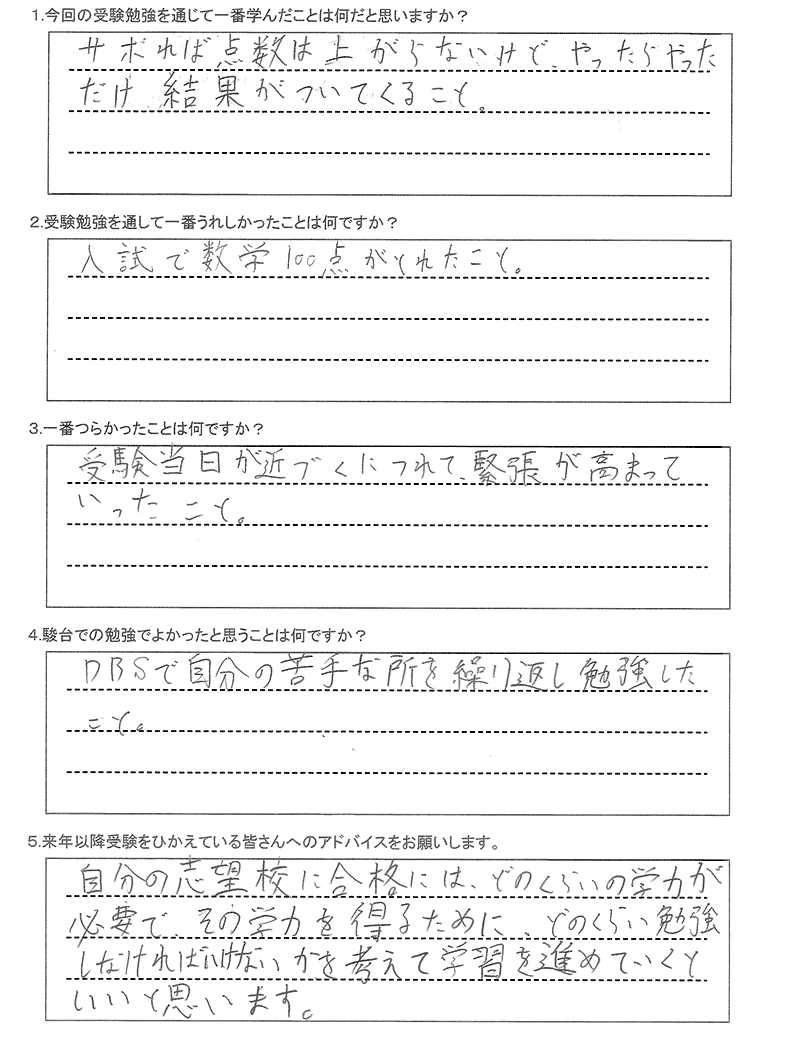 1.今回の受験勉強を通じて一番学んだことは何だと思いますか？
サボれば点数は上がらないけど、やったらやった
だけ結果がついてくること。
2.受験勉強を通して一番うれしかったことは何ですか？
入試で数学100点がとれたこと。
3.一番つらかったことは何ですか？
受験当日が近づくにつれて、緊張が高まって
いったこと。
4.駿台での勉強でよかったと思うことは何ですか？
DBSで自分の苦手な所を繰り返し勉強した
こと。
5.来年以降受験をひかえている皆さんへのアドバイスをお願いします。
自分の志望校に合格には、どのくらいの学力が
必要で、その学力を得るために、どのくらい勉強
しなければいけないかを考えて学習を進めていくと
いいと思います。